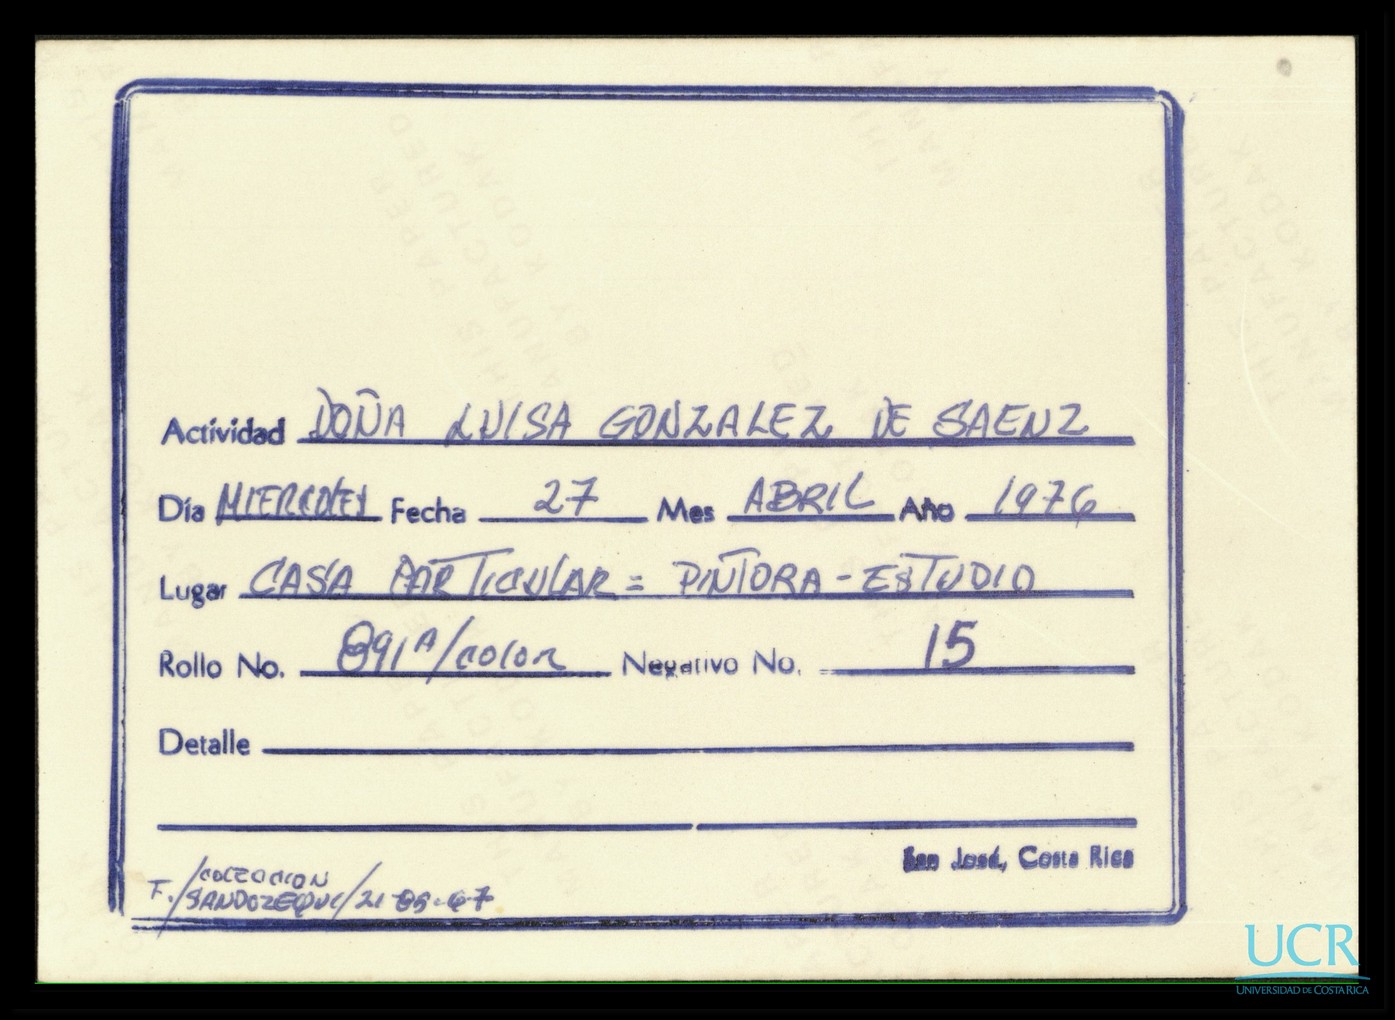 Actividad DOÑA LUISA GONZALEZ DE SAENZ
Día MIERCOLES Fecha 27 Mes ABRIL Año 1976
Lugar CASA PARTICULAR = PINTORA - ESTUDIO
Rollo No. 891A/COLOR Negativo No. 15
Detalle
San José, Costa Rica
F./COLECCION
/21-
UCR
UNIVERSIDAD DE COSTA RICA